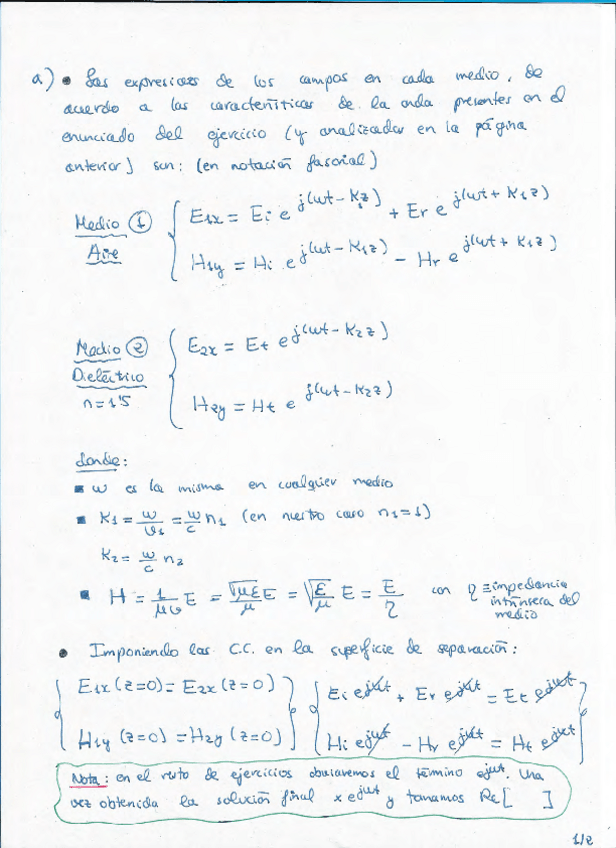 a) • Las expresiones de los campos en cada medio, de
acuerdo a las características de la onda presentes en el
enunciado del ejercicio (y analizadas en la página
anterior) son: (en notación fasorial)
Medio ① { E₁ₓ = Ei e^j(ωt - K₁z) + Er e^j(ωt + K₁z)
Aire { H₁y = Hi e^j(ωt - K₁z) - Hr e^j(ωt + K₁z)
Medio ② { E₂ₓ = Et e^j(ωt - K₂z)
Dieléctrico
n=1'5 { H₂y = Ht e^j(ωt - K₂z)
donde:
▪ ω es la misma en cualquier medio
▪ K₁ = ω/v₁ = ω/c n₁ (en nuestro caso n₁=1)
K₂ = ω/c n₂
▪ H = 1/μv E = √με/μ E = √(ε/μ) E = E/η con η ≡ impedancia
intrínseca del
medio
• Imponiendo las C.C. en la superficie de separación:
{ E₁ₓ (z=0) = E₂ₓ (z=0) } { Ei e^jωt + Er e^jωt = Et e^jωt }
{ H₁y (z=0) = H₂y (z=0) } { Hi e^jωt - Hr e^jωt = Ht e^jωt }
Nota: en el resto de ejercicios obviaremos el término e^jωt. Una
vez obtenida la solución final x e^jωt y tomamos Re[ ]
1/2